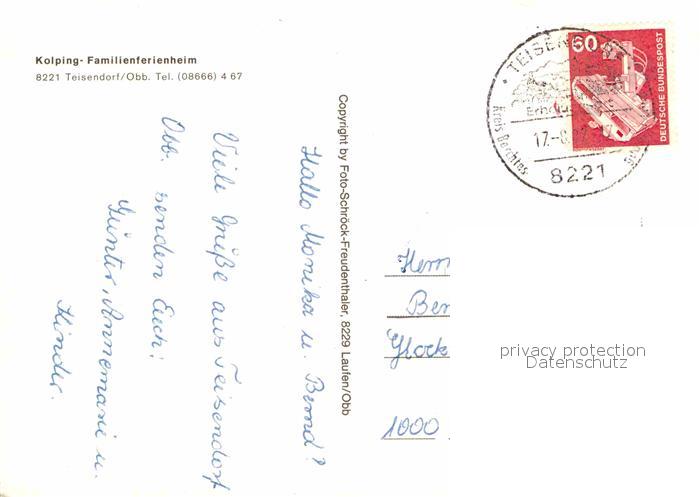 Kolping- Familienferienheim
8221 Teisendorf/Obb. Tel. (08666) 4 67
Hallo Monika u. Bernd!
Viele Grüße aus Teisendorf
Obb. senden Euch!
Günter, Annemarie u.
Kinder.
Copyright by Foto-Schröck-Freudenthaler, 8229 Laufen/Obb
TEISENDORF
Kreis Berchtes
17.-8.
8221
60
DEUTSCHE BUNDESPOST
Herrn
Ber
Glock
1000
privacy protection
Datenschutz